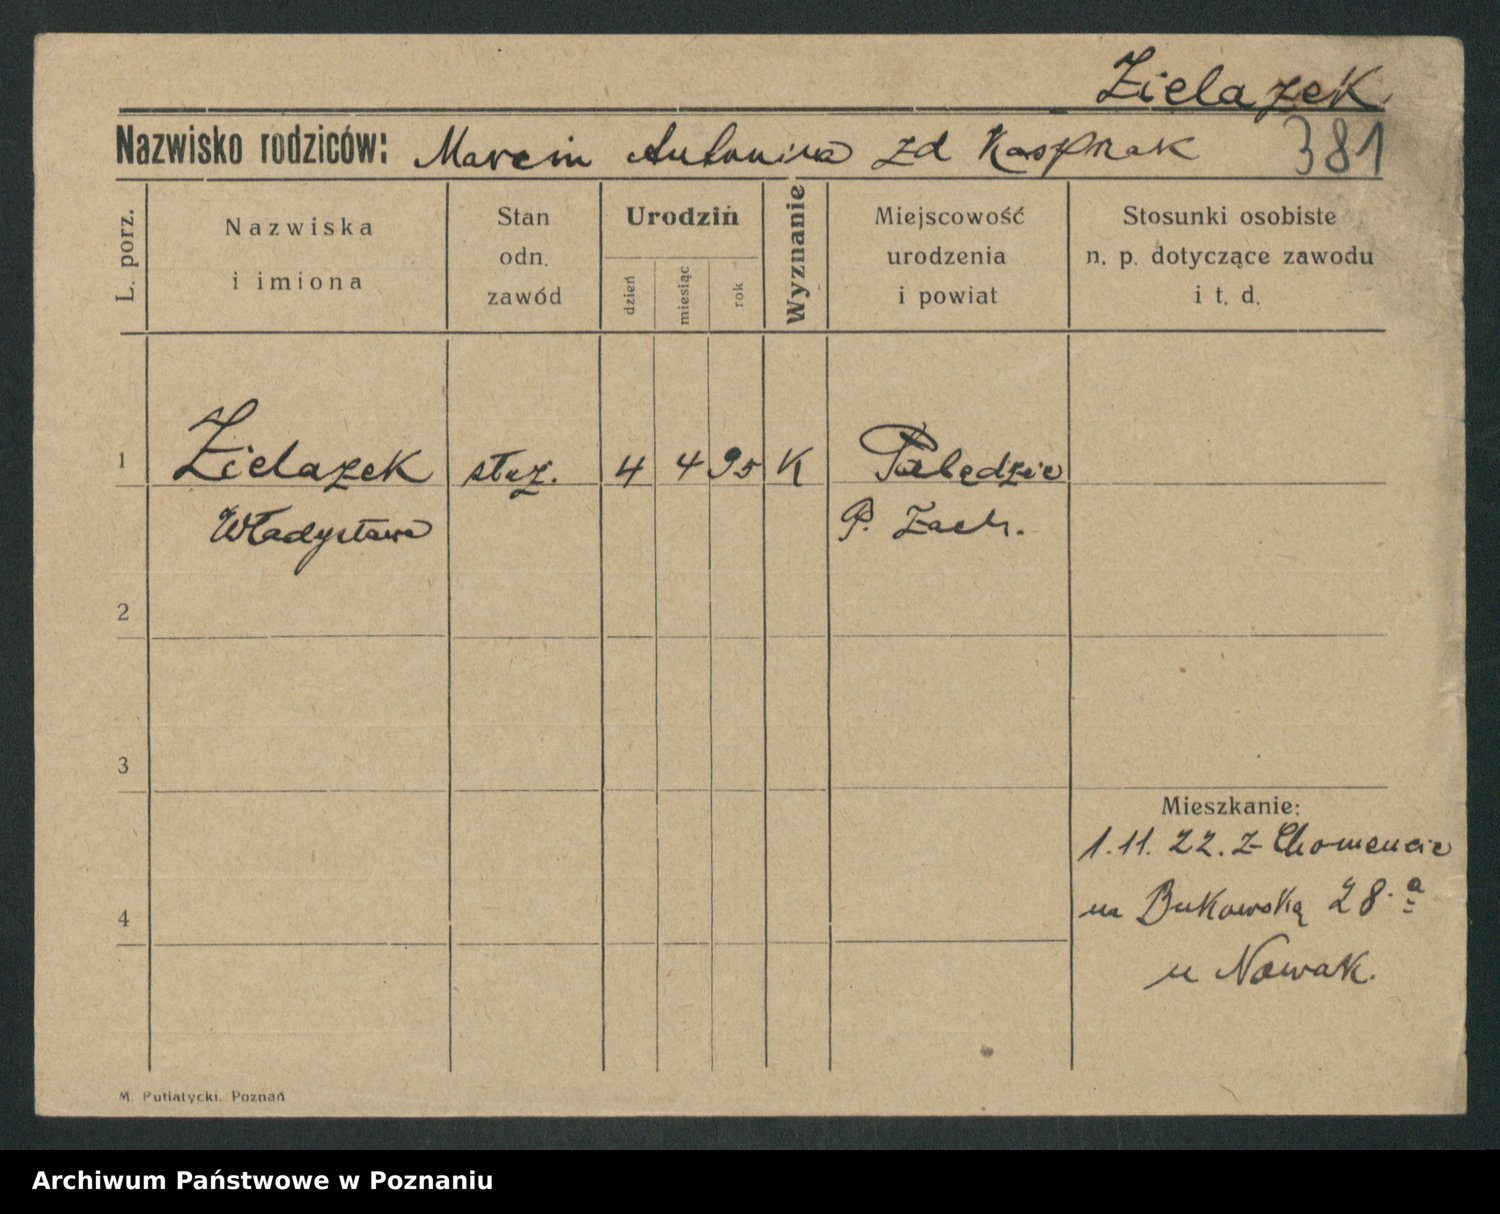 Zielazek
Nazwisko rodziców: Marcin Antonina zd Kasprzak 381
L. porz.
Nazwiska
i imiona
Stan
odn.
zawód
Urodziń
dzień
miesiąc
rok
Wyznanie
Miejscowość
urodzenia
i powiat
Stosunki osobiste
n. p. dotyczące zawodu
i t. d.
1 Zielazek służ. 4 4 95 K Palędzie
Władysława P. Zach.
2
3
Mieszkanie:
1. 11. 22. z Chomencic
na Bukowską 28.a
4
u Nowak.
M. Putiatycki. Poznań
Archiwum Państwowe w Poznaniu